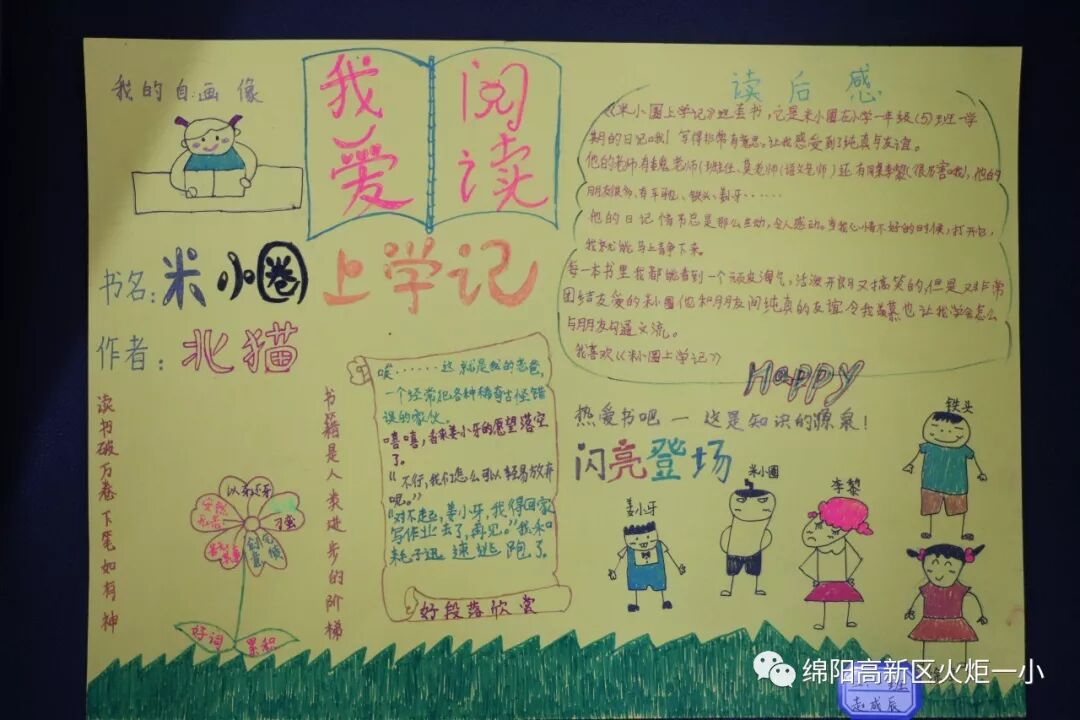 我的自画像
我爱
阅读
书名:米小圈上学记
作者:北猫
读书破万卷下笔如有神
书籍是人类进步的阶梯
好词
累积
唉……这就是我的爸爸,
一个经常犯各种稀奇古怪错
误的家伙。
嘻嘻,看来姜小牙的愿望落空
了。
“不行,我们怎么可以轻易放弃
呢。”
“对不起,姜小牙,我得回家
写作业去了,再见。”我和
耗子迅速逃跑了。
好段落欣赏
读后感
《米小圈上学记》这套书,它是米小圈在小学一年级(5)班一学
期的日记哦!写得非常有意思,让我感受到了纯真与友谊。
他的老师有魏老师(班主任、莫老师(语文老师)还有同桌李黎(很厉害哦),他的
朋友很多,有车驰、铁头、姜小牙……
他的日记情节总是那么生动,令人感动。当我心情不好的时候,打开它,
我就能马上静下来。
每一本书里我都能看到一个顽皮淘气,活泼开朗又搞笑的,但是又非常
团结友爱的米小圈他和朋友间纯真的友谊令我羡慕也让我学会怎么
与朋友沟通交流。
我喜欢《米小圈上学记》
Happy
热爱书吧一这是知识的源泉!
闪亮登场
姜小牙
米小圈
李黎
铁头
班
赵成辰
绵阳高新区火炬一小